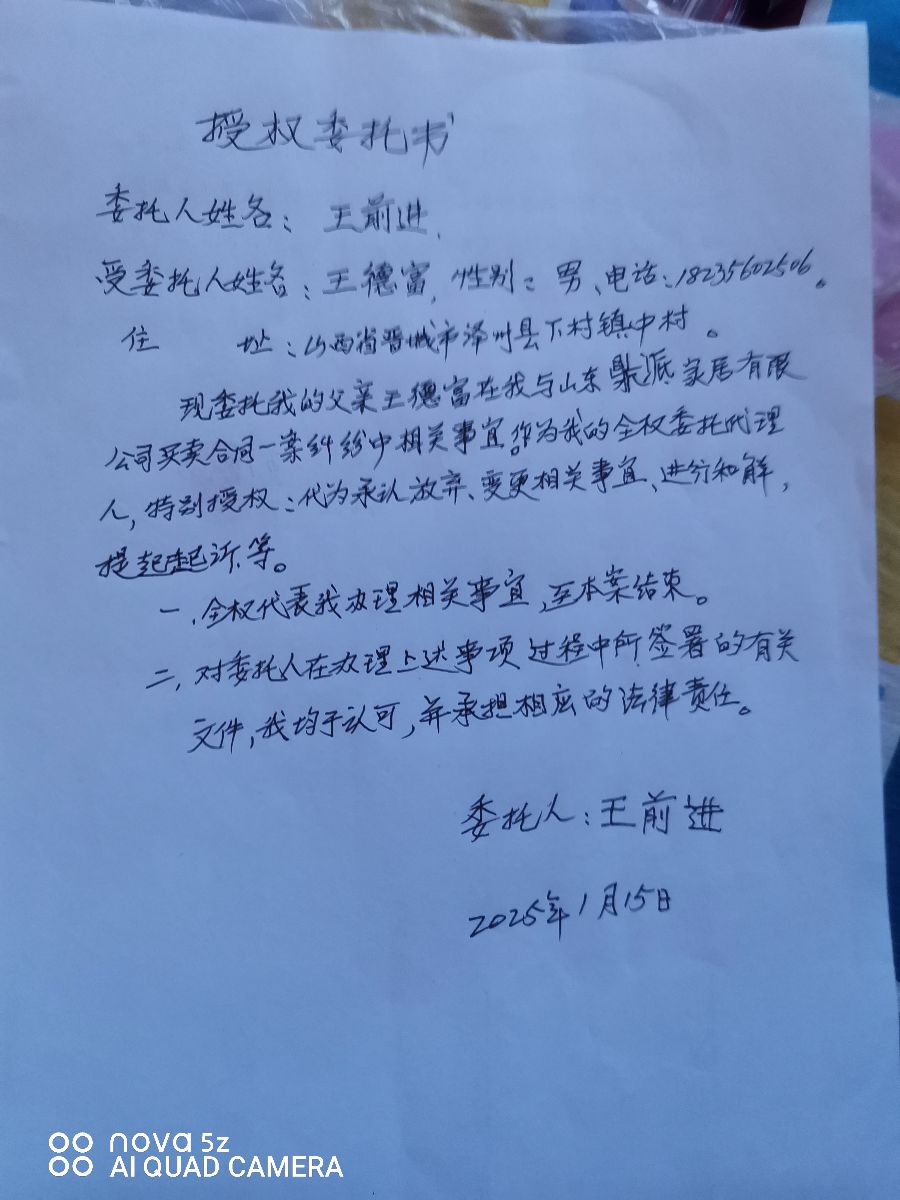 授权委托书
委托人姓名：王前进.
受委托人姓名：王德富，性别：男、电话：18235602506。
住 址：山西省晋城市泽州县下村镇中村。
现委托我的父亲王德富在我与山东鼎派家居有限
公司买卖合同一案纠纷中相关事宜。作为我的全权委托代理
人，特别授权：代为承认放弃、变更相关事宜、进行和解，
提起起诉等。
一、全权代表我办理相关事宜、至本案结束。
二，对委托人在办理上述事项过程中所签署的有关
文件，我均予认可，并承担相应的法律责任。
委托人：王前进
2025年1月15日
nova 5z
AI QUAD CAMERA